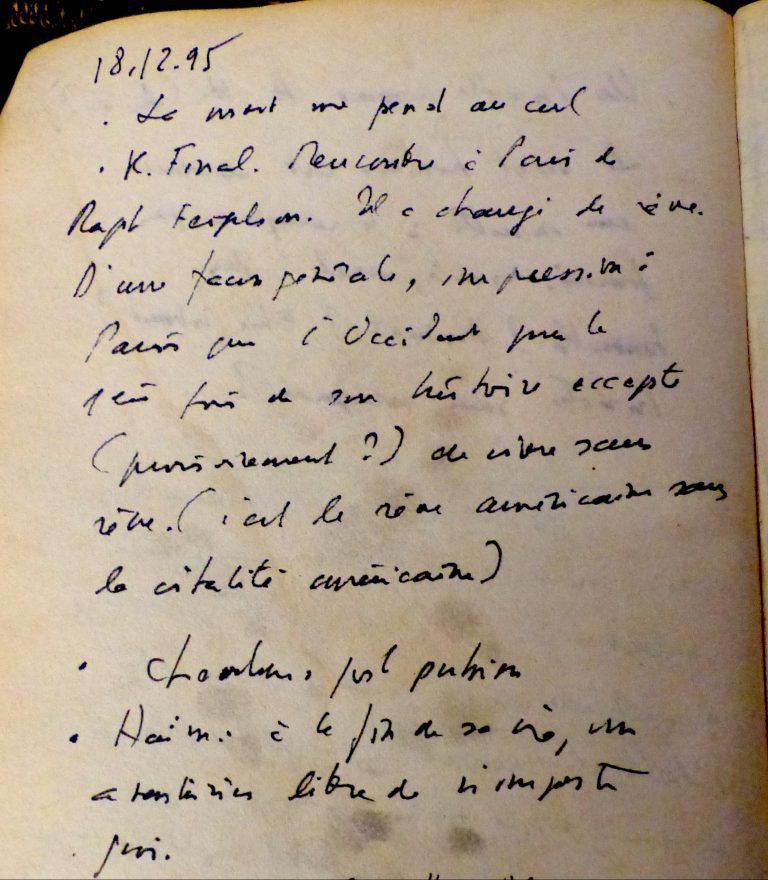 18.12.95
. La mort me pend au cul
. K. Final. Rencontre à Paris de
Raph Il a changé de rêve.
D'une façon générale, impression à
Paris que l'Occident pour la
1ère fois de son histoire accepte
(provisoirement ?) de vivre sans
rêve. (c'est le rêve américain sans
la vitalité américaine)
. just
. Haïm : à la fin de sa vie, un
aventurier libre de n'importe
quoi.